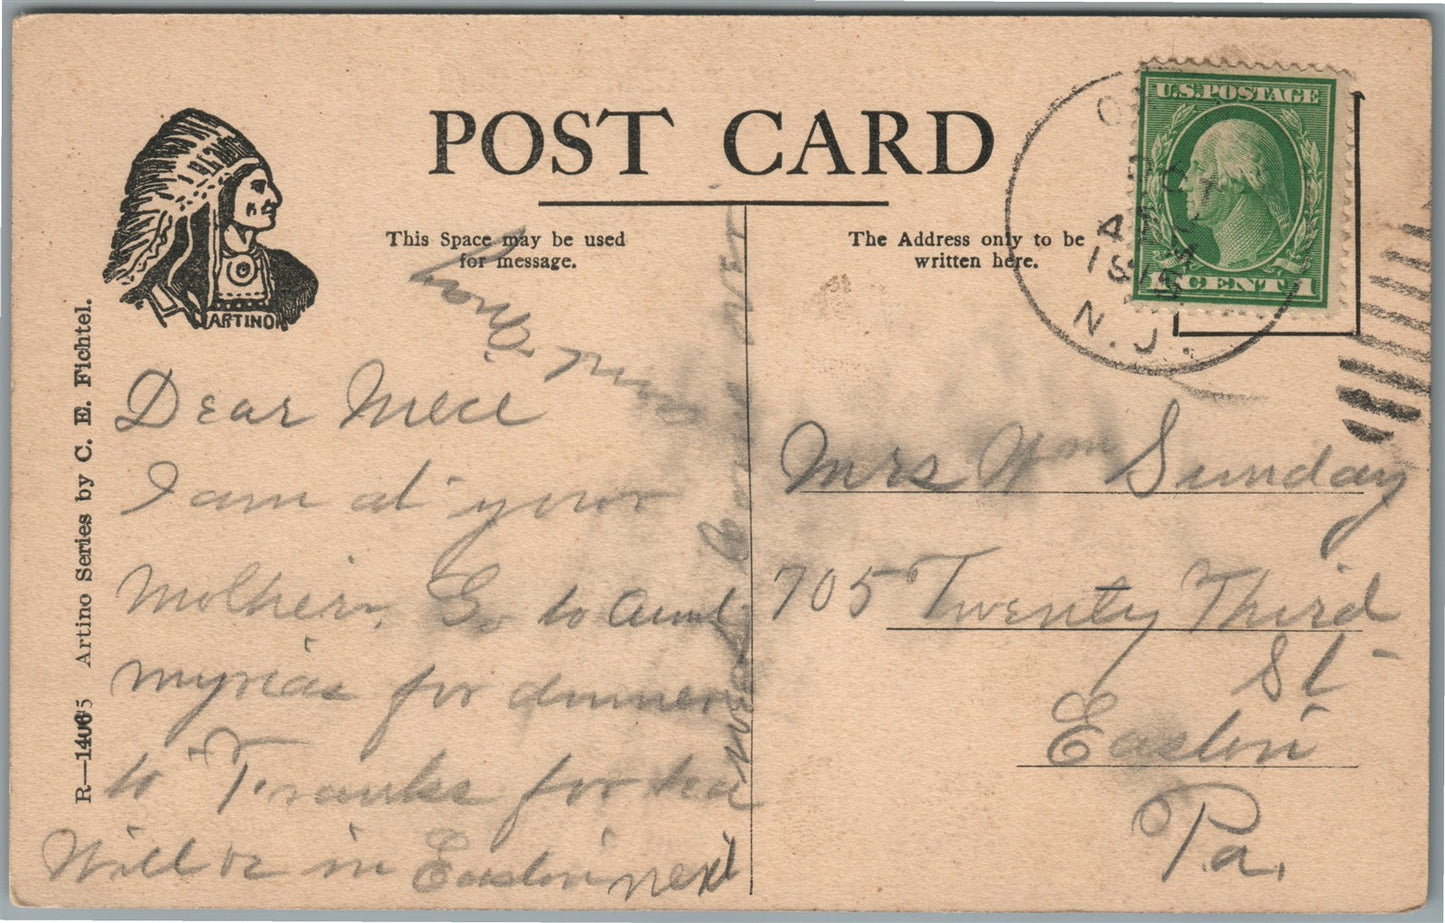 POST CARD
This Space may be used
for message.
The Address only to be
written here.
U.S. POSTAGE
1 CENT 1
OCT
4
1915
N. J.
ARTINO
R—14065 Artino Series by C. E. Fichtel.
Dear Niece
I am at your
Mothers, Go to Aunt
Myrias for dinner
to Franks for tea
Will be in Easton next
week
Aunt
Mrs Wm Sunday
705 Twenty Third
St
Easton
Pa.